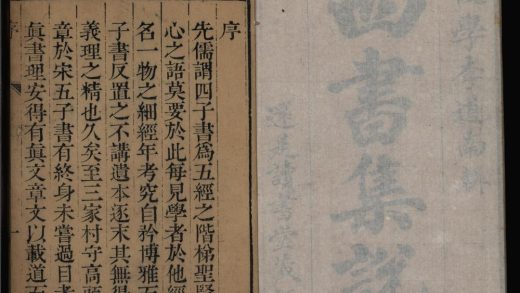 學李道南輯
四書集說
還是讀書堂藏
序
先儒謂四子書爲五經之階梯聖賢
心之語莫要於此每見學者於他經
名一物之細經年考究自矜博雅而
子書反置之不講遺本逐末其無得
義理之精也久矣至三家村守高頭
章於宋五子書有終身未嘗過目者
眞書理安得有眞文章文以載道而
序 一